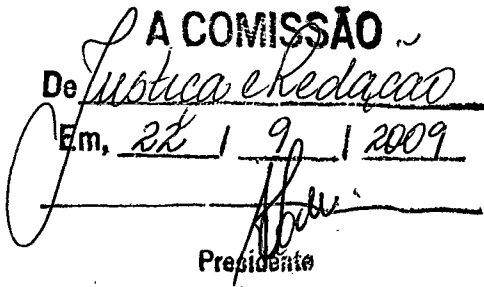 A COMISSÃO
De Justica e Redação
Em, 22 / 9 / 2009
Presidente